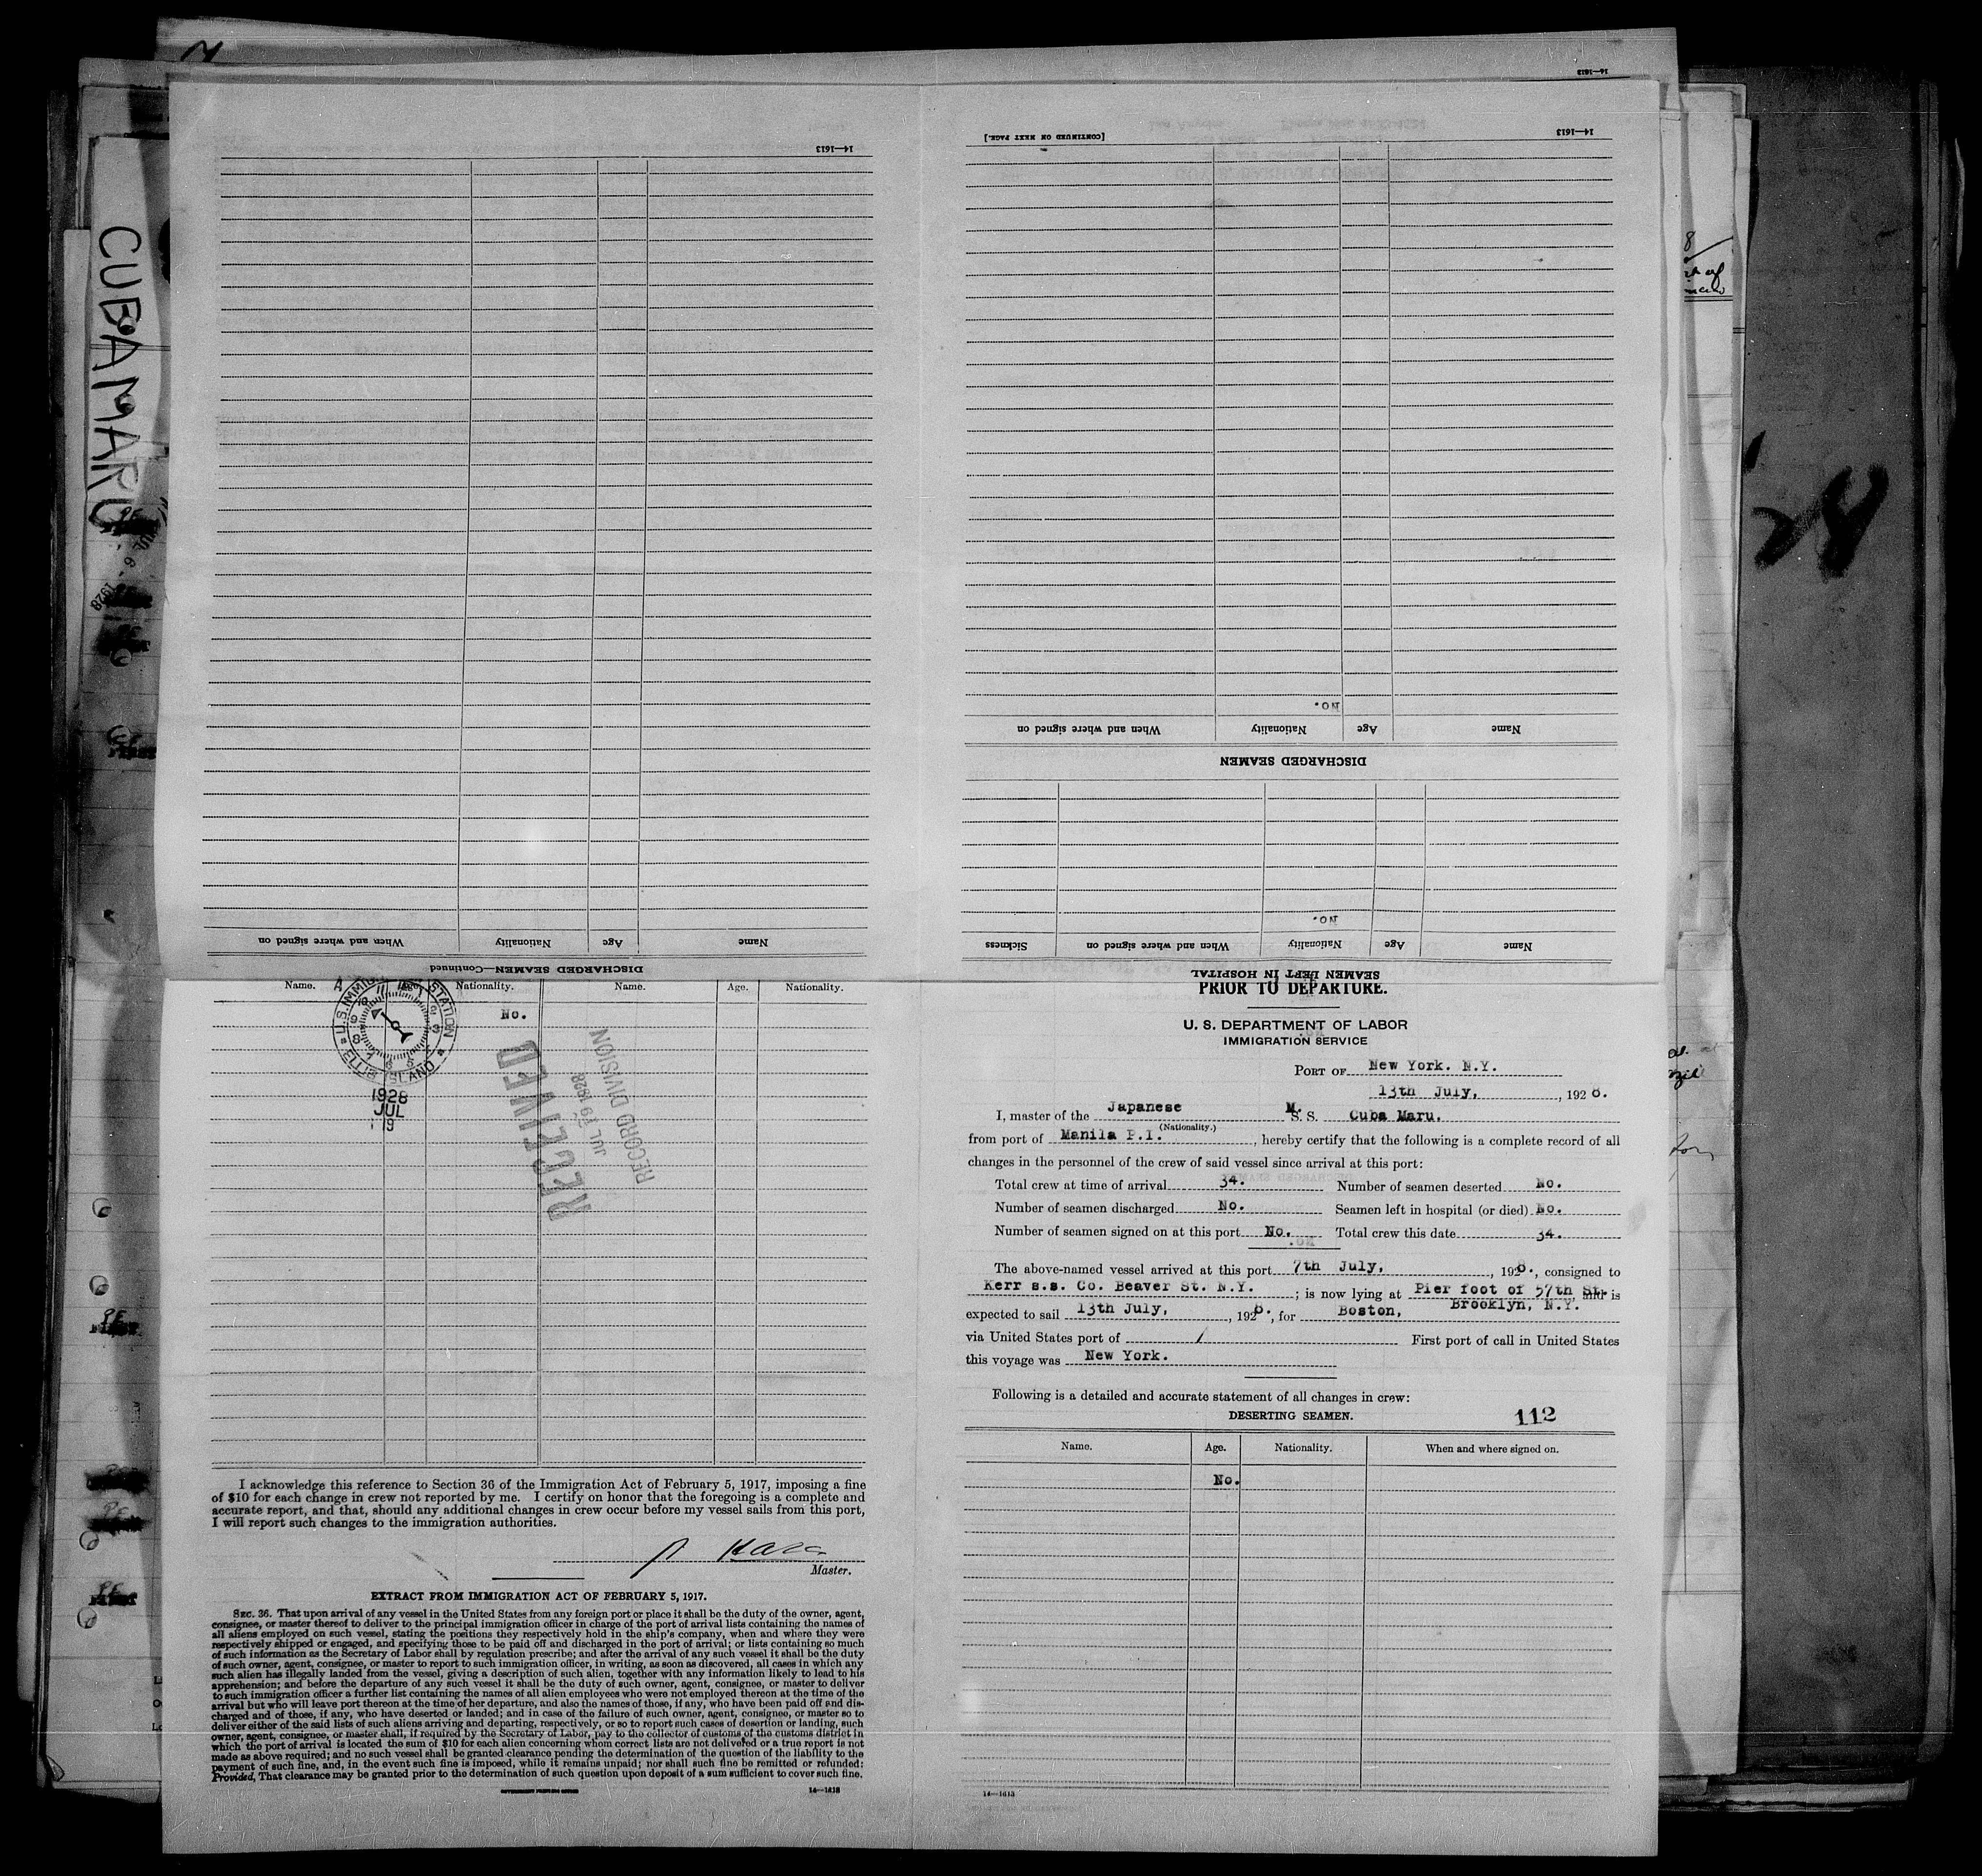 14—1613
14—1613
[CONTINUED ON NEXT PAGE.]
14—1613
CUBA MARU
JUL
6
1928
No.
Name
Age
Nationality
When and where signed on
DISCHARGED SEAMEN
No.
Name
Age
Nationality
When and where signed on
Sickness
SEAMEN LEFT IN HOSPITAL
Name
Age
Nationality
When and where signed on
DISCHARGED SEAMEN—Continued
Name. Nationality. Name. Age. Nationality.
No.
U. S. IMMIGRATION STATION
ELLIS ISLAND
1928
JUL
19
RECEIVED
JUL 19 1928
RECORD DIVISION
I acknowledge this reference to Section 36 of the Immigration Act of February 5, 1917, imposing a fine
of $10 for each change in crew not reported by me. I certify on honor that the foregoing is a complete and
accurate report, and that, should any additional changes in crew occur before my vessel sails from this port,
I will report such changes to the immigration authorities.
Master.
EXTRACT FROM IMMIGRATION ACT OF FEBRUARY 5, 1917.
SEC. 36. That upon arrival of any vessel in the United States from any foreign port or place it shall be the duty of the owner, agent,
consignee, or master thereof to deliver to the principal immigration officer in charge of the port of arrival lists containing the names of
all aliens employed on such vessel, stating the positions they respectively hold in the ship's company, when and where they were
respectively shipped or engaged, and specifying those to be paid off and discharged in the port of arrival; or lists containing so much
of such information as the Secretary of Labor shall by regulation prescribe; and after the arrival of any such vessel it shall be the duty
of such owner, agent, consignee, or master to report to such immigration officer, in writing, as soon as discovered, all cases in which any
such alien has illegally landed from the vessel, giving a description of such alien, together with any information likely to lead to his
apprehension; and before the departure of any such vessel it shall be the duty of such owner, agent, consignee, or master to deliver
to such immigration officer a further list containing the names of all alien employees who were not employed thereon at the time of the
arrival but who will leave port thereon at the time of her departure, and also the names of those, if any, who have been paid off and dis-
charged and of those, if any, who have deserted or landed; and in case of the failure of such owner, agent, consignee, or master so to
deliver either of the said lists of such aliens arriving and departing, respectively, or so to report such cases of desertion or landing, such
owner, agent, consignee, or master shall, if required by the Secretary of Labor, pay to the collector of customs of the customs district in
which the port of arrival is located the sum of $10 for each alien concerning whom correct lists are not delivered or a true report is not
made as above required; and no such vessel shall be granted clearance pending the determination of the question of the liability to the
payment of such fine, and, in the event such fine is imposed, while it remains unpaid; nor shall such fine be remitted or refunded:
Provided, That clearance may be granted prior to the determination of such question upon deposit of a sum sufficient to cover such fine.
GOVERNMENT PRINTING OFFICE
14—1613
PRIOR TO DEPARTURE.
U. S. DEPARTMENT OF LABOR
IMMIGRATION SERVICE
PORT OF New York. N.Y.
13th July, , 1928.
I, master of the Japanese M. S. S. Cuba Maru.
(Nationality.)
from port of Manila P.I. , hereby certify that the following is a complete record of all
changes in the personnel of the crew of said vessel since arrival at this port:
Total crew at time of arrival 34. Number of seamen deserted No.
Number of seamen discharged No. Seamen left in hospital (or died) No.
Number of seamen signed on at this port No. Total crew this date 34.
The above-named vessel arrived at this port 7th July, , 1928., consigned to
Kerr s.s. Co. Beaver St. N.Y. ; is now lying at Pier foot of 57th St. and is
Brooklyn, N.Y.
expected to sail 13th July, , 1928. , for Boston,
via United States port of / First port of call in United States
this voyage was New York.
Following is a detailed and accurate statement of all changes in crew:
DESERTING SEAMEN.
112
Name. Age. Nationality. When and where signed on.
No.
14—1613